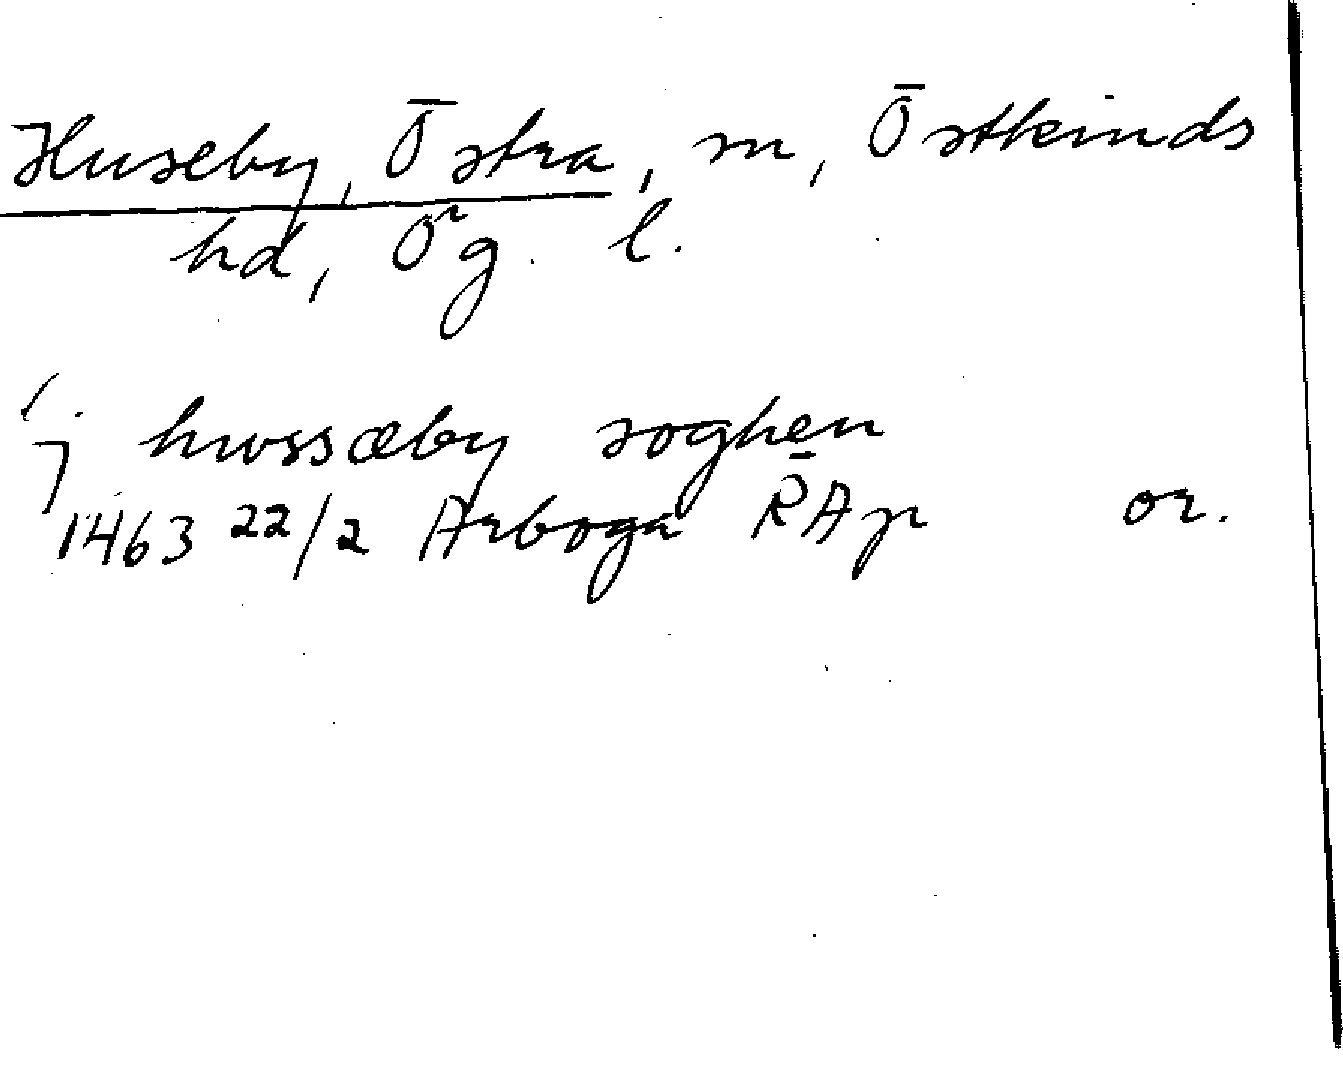 Huseby, Östra, sn, Östkinds
hd, Ög. l.
j hwssæby soghen
1463 22/2 Arboga RAp or.